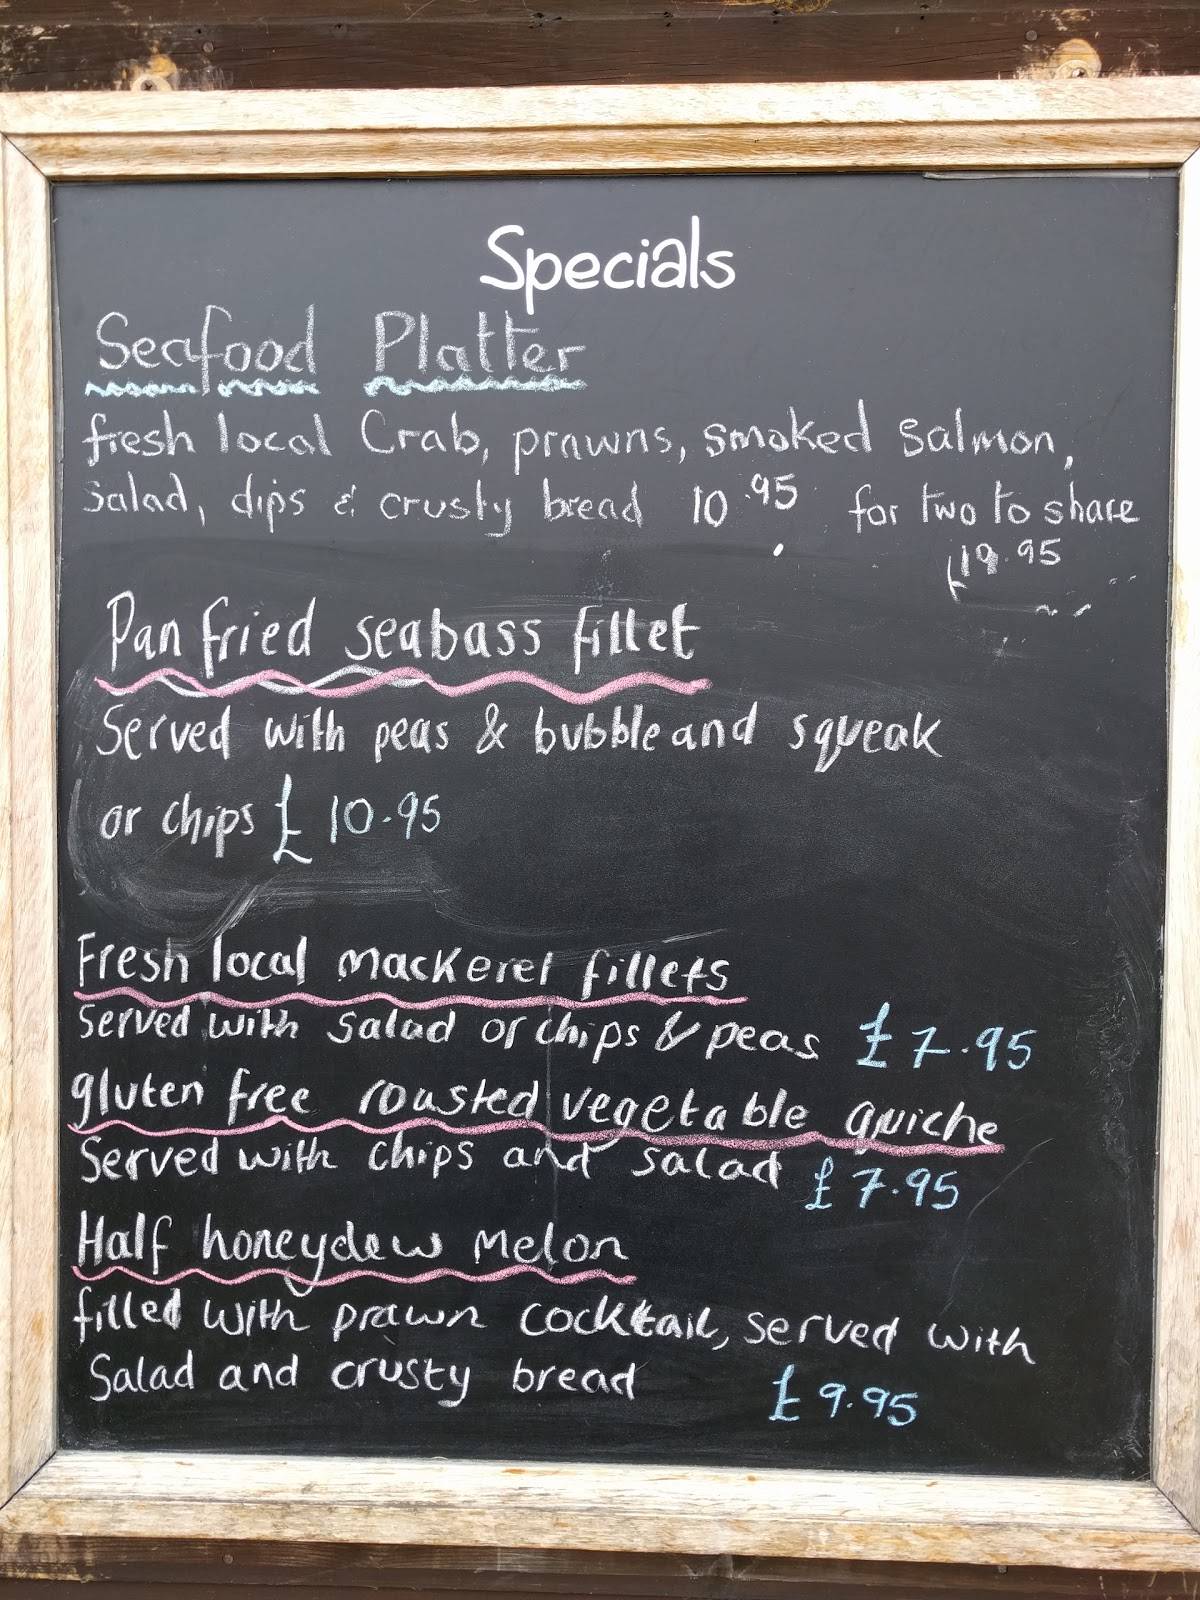 Specials
Seafood Platter
fresh local Crab, prawns, smoked salmon,
salad, dips & crusty bread 10.95 for two to share
£19.95
Pan fried seabass fillet
Served with peas & bubble and squeak
or chips £10.95
Fresh local mackerel fillets
Served with salad or chips & peas £7.95
gluten free roasted vegetable quiche
Served with chips and salad £7.95
Half honeydew melon
filled with prawn cocktail, served with
Salad and crusty bread £9.95